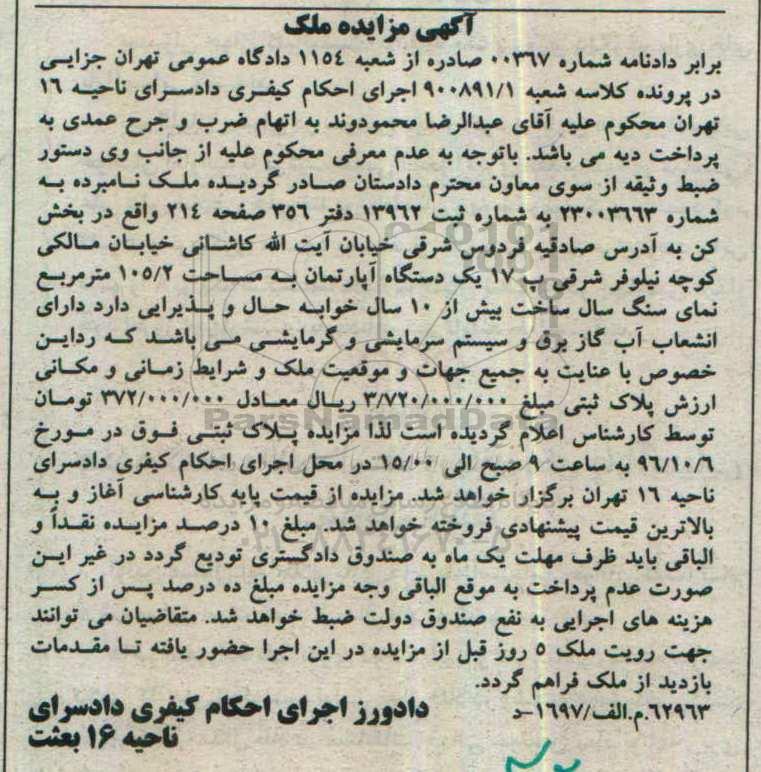 آگهی مزایده ملک
برابر دادنامه شماره ۰۰۳۶۷ صادره از شعبه ۱۱۵۴ دادگاه عمومی تهران جزایی
در پرونده کلاسه شعبه ۹۰۰۸۹۱/۱ اجرای احکام کیفری دادسرای ناحیه ۱۶
تهران محکوم علیه آقای عبدالرضا محمودوند به اتهام ضرب و جرح عمدی به
پرداخت دیه می باشد. باتوجه به عدم معرفی محکوم علیه از جانب وی دستور
ضبط وثیقه از سوی معاون محترم دادستان صادر گردیده ملک نامبرده به
شماره ۲۳۰۰۳۶۶۳ به شماره ثبت ۱۳۹۶۲ دفتر ۳۵۶ صفحه ۲۱۴ واقع در بخش
کن به آدرس صادقیه فردوس شرقی خیابان آیت الله کاشانی خیابان مالکی
کوچه نیلوفر شرقی پ ۱۷ یک دستگاه آپارتمان به مساحت ۱۰۵/۲ مترمربع
نمای سنگ سال ساخت بیش از ۱۰ سال خوابه حال و پذیرایی دارد دارای
انشعاب آب گاز برق و سیستم سرمایشی و گرمایشی می باشد که رداین
خصوص با عنایت به جمیع جهات و موقعیت ملک و شرایط زمانی و مکانی
ارزش پلاک ثبتی مبلغ ۳/۷۲۰/۰۰۰/۰۰۰ ریال معادل ۳۷۲/۰۰۰/۰۰۰ تومان
توسط کارشناس اعلام گردیده است لذا مزایده پلاک ثبتی فوق در مورخ
۹۶/۱۰/۶ به ساعت ۹ صبح الی ۱۵/۰۰ در محل اجرای احکام کیفری دادسرای
ناحیه ۱۶ تهران برگزار خواهد شد. مزایده از قیمت پایه کارشناسی آغاز و به
بالاترین قیمت پیشنهادی فروخته خواهد شد. مبلغ ۱۰ درصد مزایده نقداً و
الباقی باید ظرف مهلت یک ماه به صندوق دادگستری تودیع گردد در غیر این
صورت عدم پرداخت به موقع الباقی وجه مزایده مبلغ ده درصد پس از کسر
هزینه های اجرایی به نفع صندوق دولت ضبط خواهد شد. متقاضیان می توانند
جهت رویت ملک ۵ روز قبل از مزایده در این اجرا حضور یافته تا مقدمات
بازدید از ملک فراهم گردد.
۶۲۹۶۳.م.الف/۱۶۹۷-د
دادورز اجرای احکام کیفری دادسرای
ناحیه ۱۶ بعثت
ParsNamadData